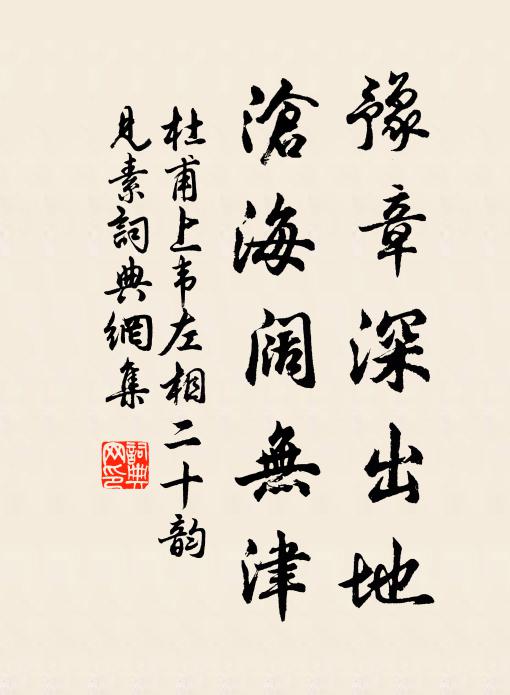 豫章深出地
滄海阔無津
杜甫上韦左相二十韵
見素詞典網集
詞典网印